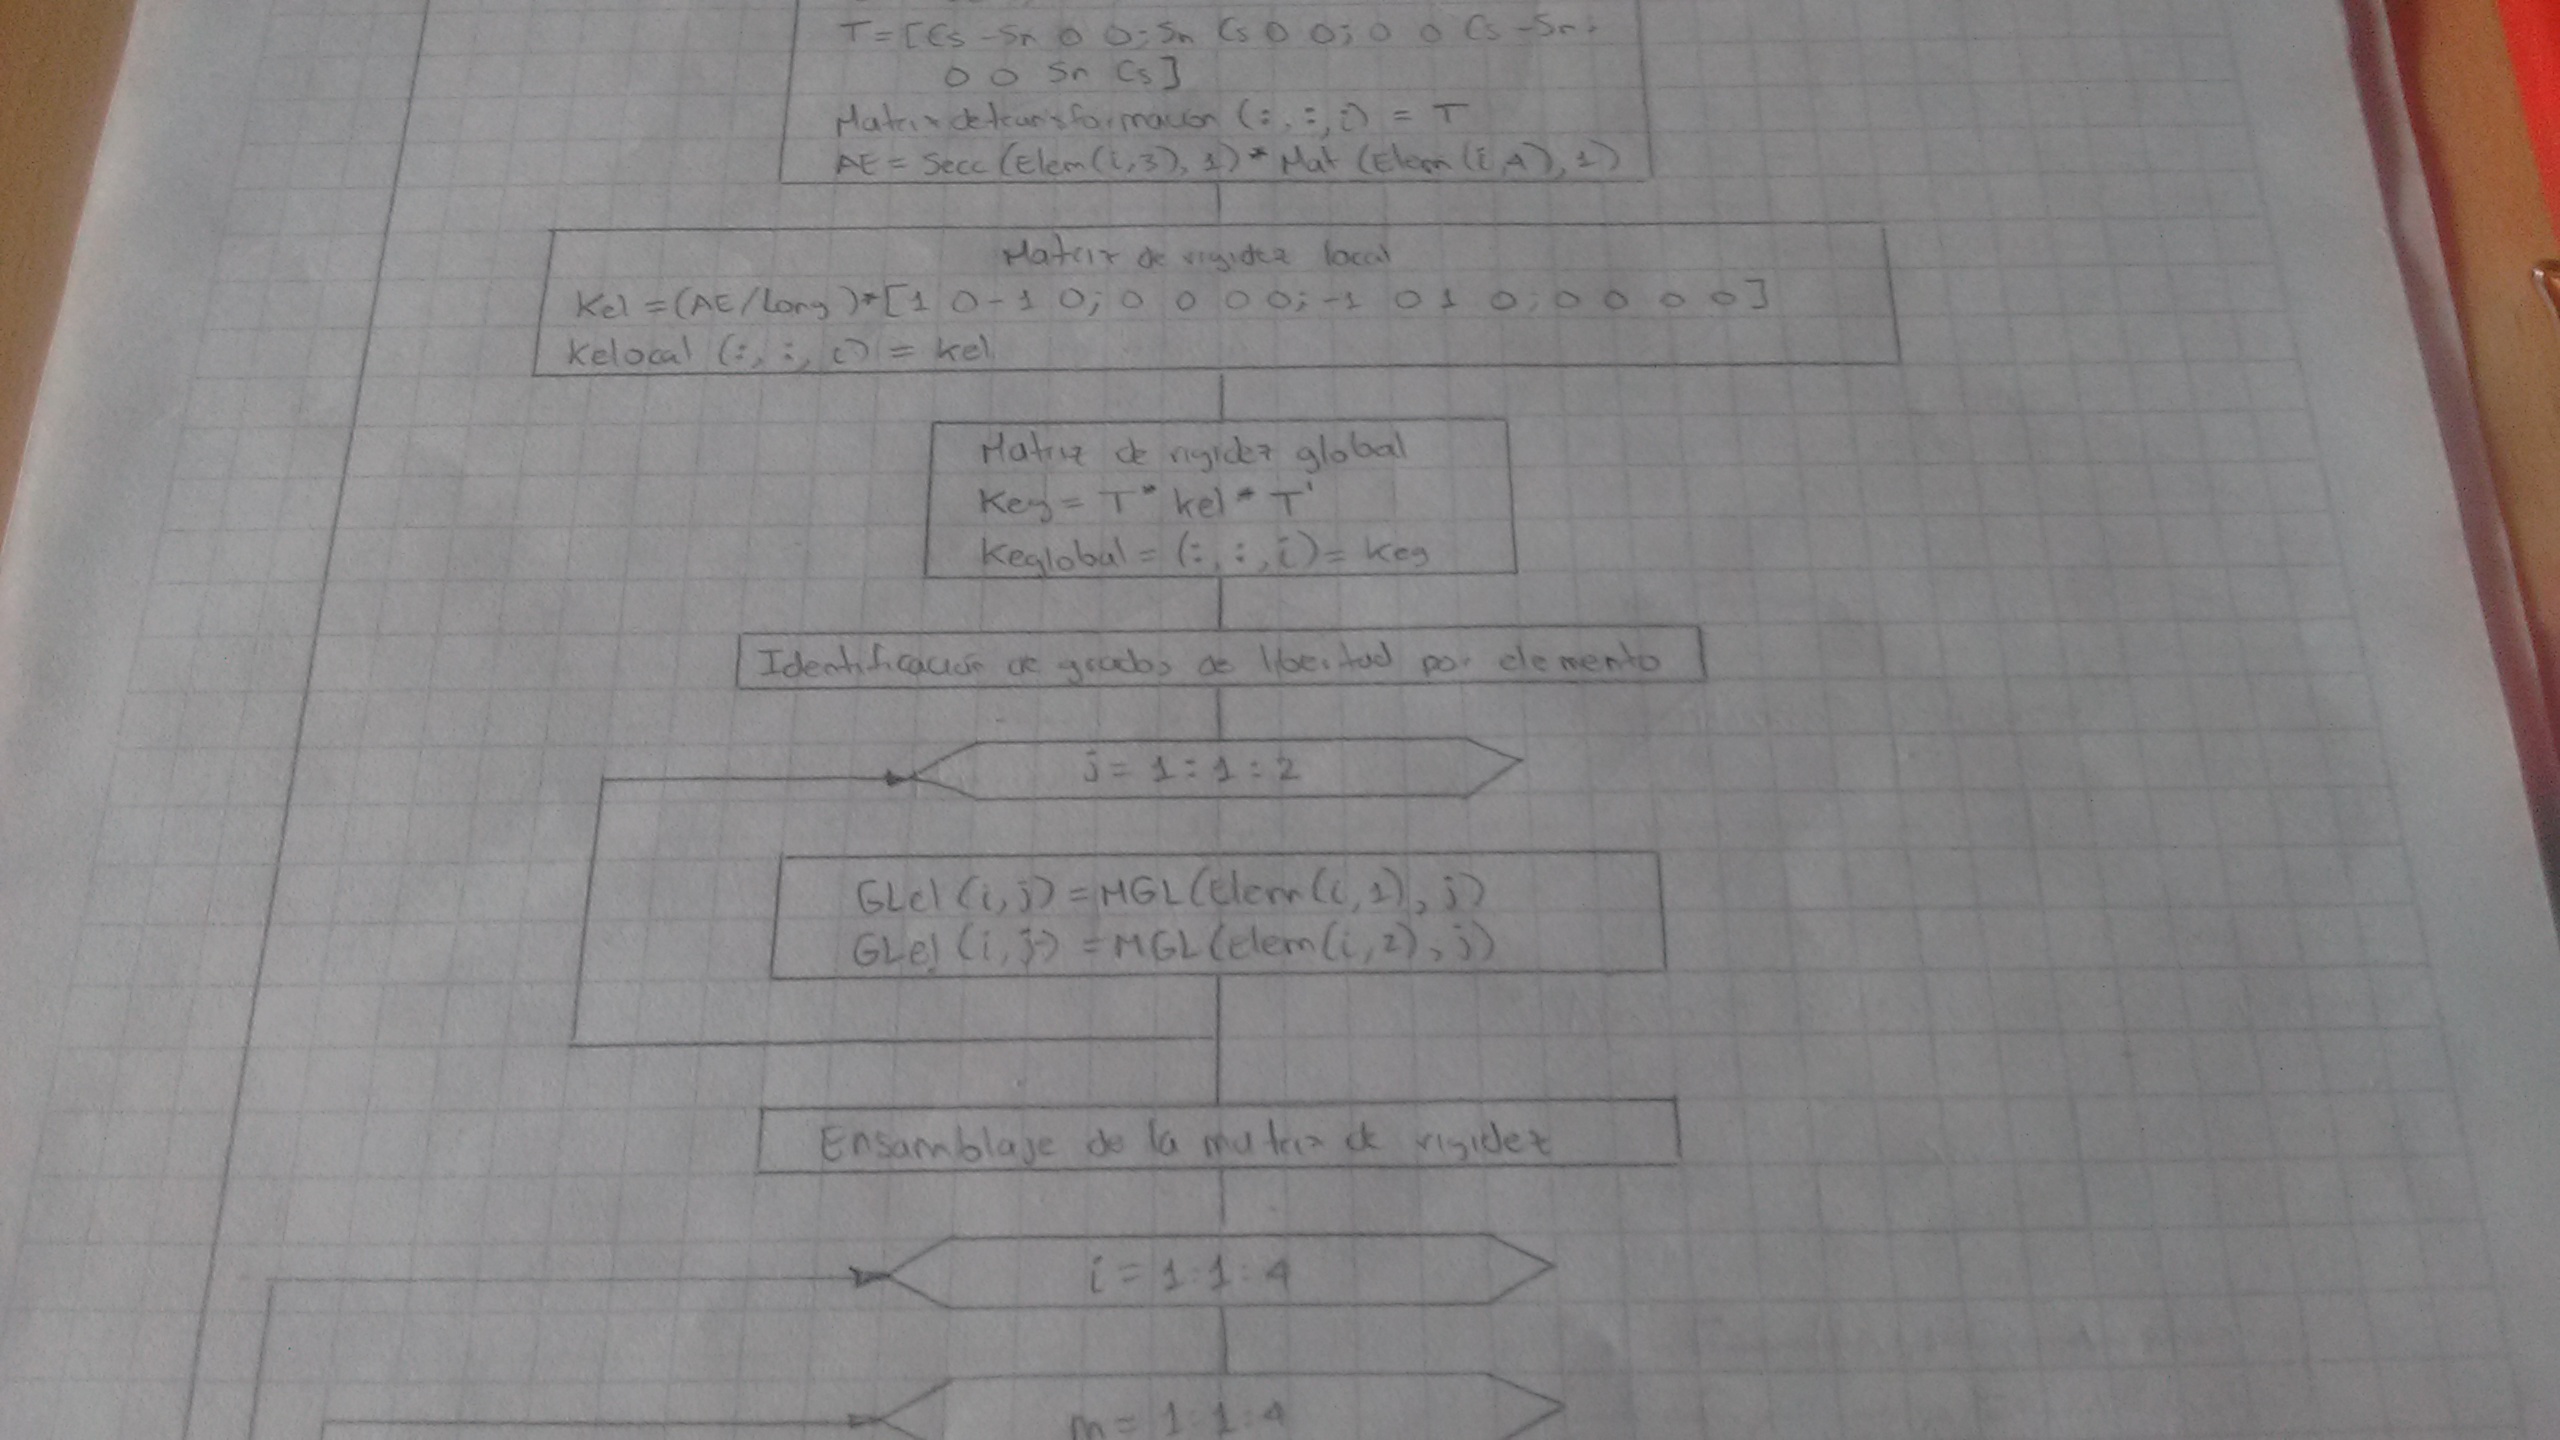 T=[Cs -Sn 0 0;Sn Cs 0 0;0 0 Cs -Sn;
0 0 Sn Cs]
Matriz de transformación (:,:,i) = T
AE = Secc (Elem(i,3),1)* Mat (Elem(i,4),1)
Matriz de rigidez local
Kel =(AE/Long)*[1 0 -1 0; 0 0 0 0; -1 0 1 0; 0 0 0 0]
Kelocal (:,:,i) = kel
Matriz de rigidez global
Keg = T* kel * T'
Keglobal = (:,:,i)= keg
Identificación de grados de libertad por elemento
j= 1:1:2
GLel (i,j) =MGL(Elem(i,1),j)
GLel (i,j) =MGL(elem(i,2),j)
Ensamblaje de la matriz de rigidez
i = 1:1:4
m= 1:1:4